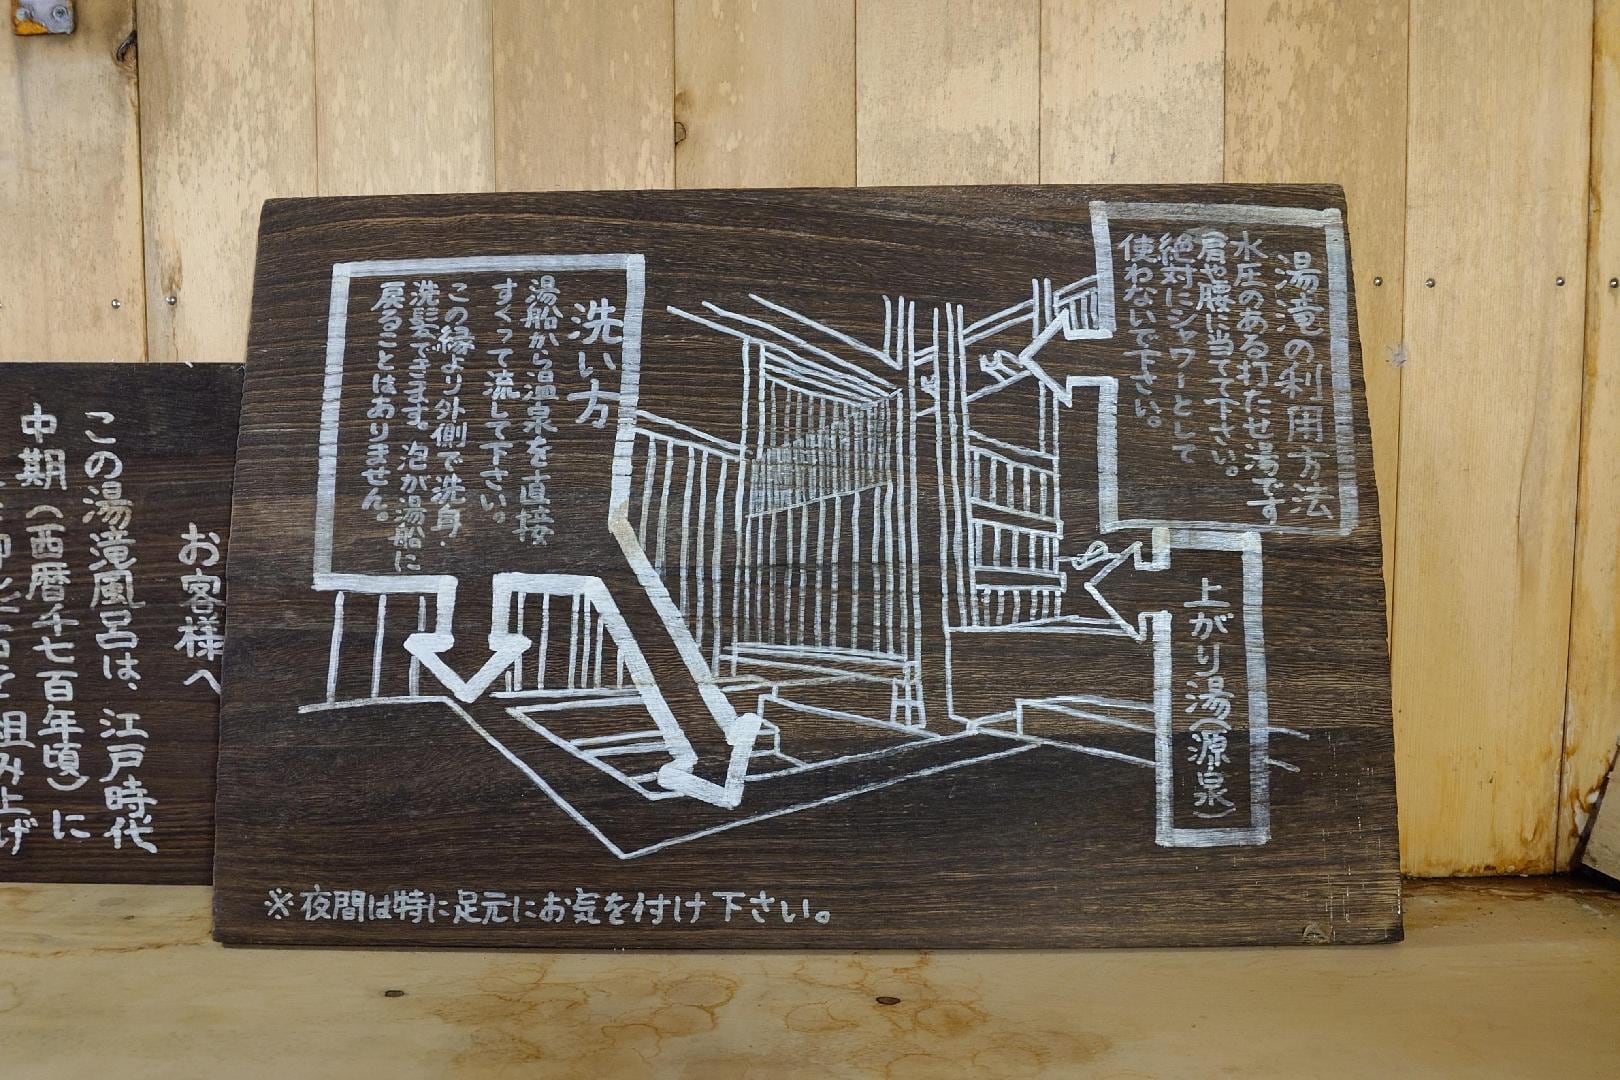 湯滝の利用方法
水圧のある打たせ湯です
肩や腰に当てて下さい。
絶対にシャワーとして
使わないで下さい。
上がり湯(源泉)
洗い方
湯船から温泉を直接
すくって流して下さい。
この縁より外側で洗身・
洗髪できます。泡が湯船に
戻ることはありません。
※夜間は特に足元にお気を付け下さい。
お客様へ
この湯滝風呂は、江戸時代
中期(西暦千七百年頃)に
組み上げ